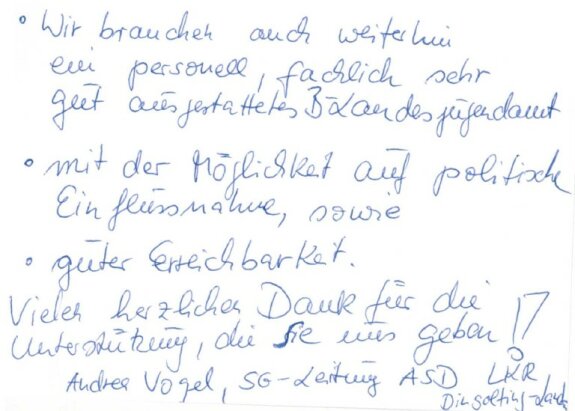 • Wir brauchen auch weiterhin
ein personell, fachlich sehr
gut ausgestattetes Landesjugendamt
• mit der Möglichkeit auf politische
Einflussnahme, sowie
• guter Erreichbarkeit.
Vielen herzlichen Dank für die
Unterstützung, die Sie uns geben!
Andrea Vogel, SG-Leitung ASD LKR,